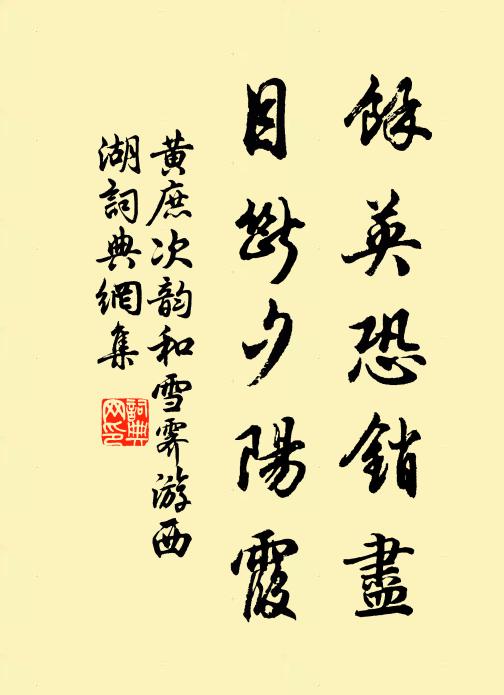 餘英恐銷盡
目斷夕陽霞
黃庶次韵和雪霽游西
湖詞典網集
詞典
网印